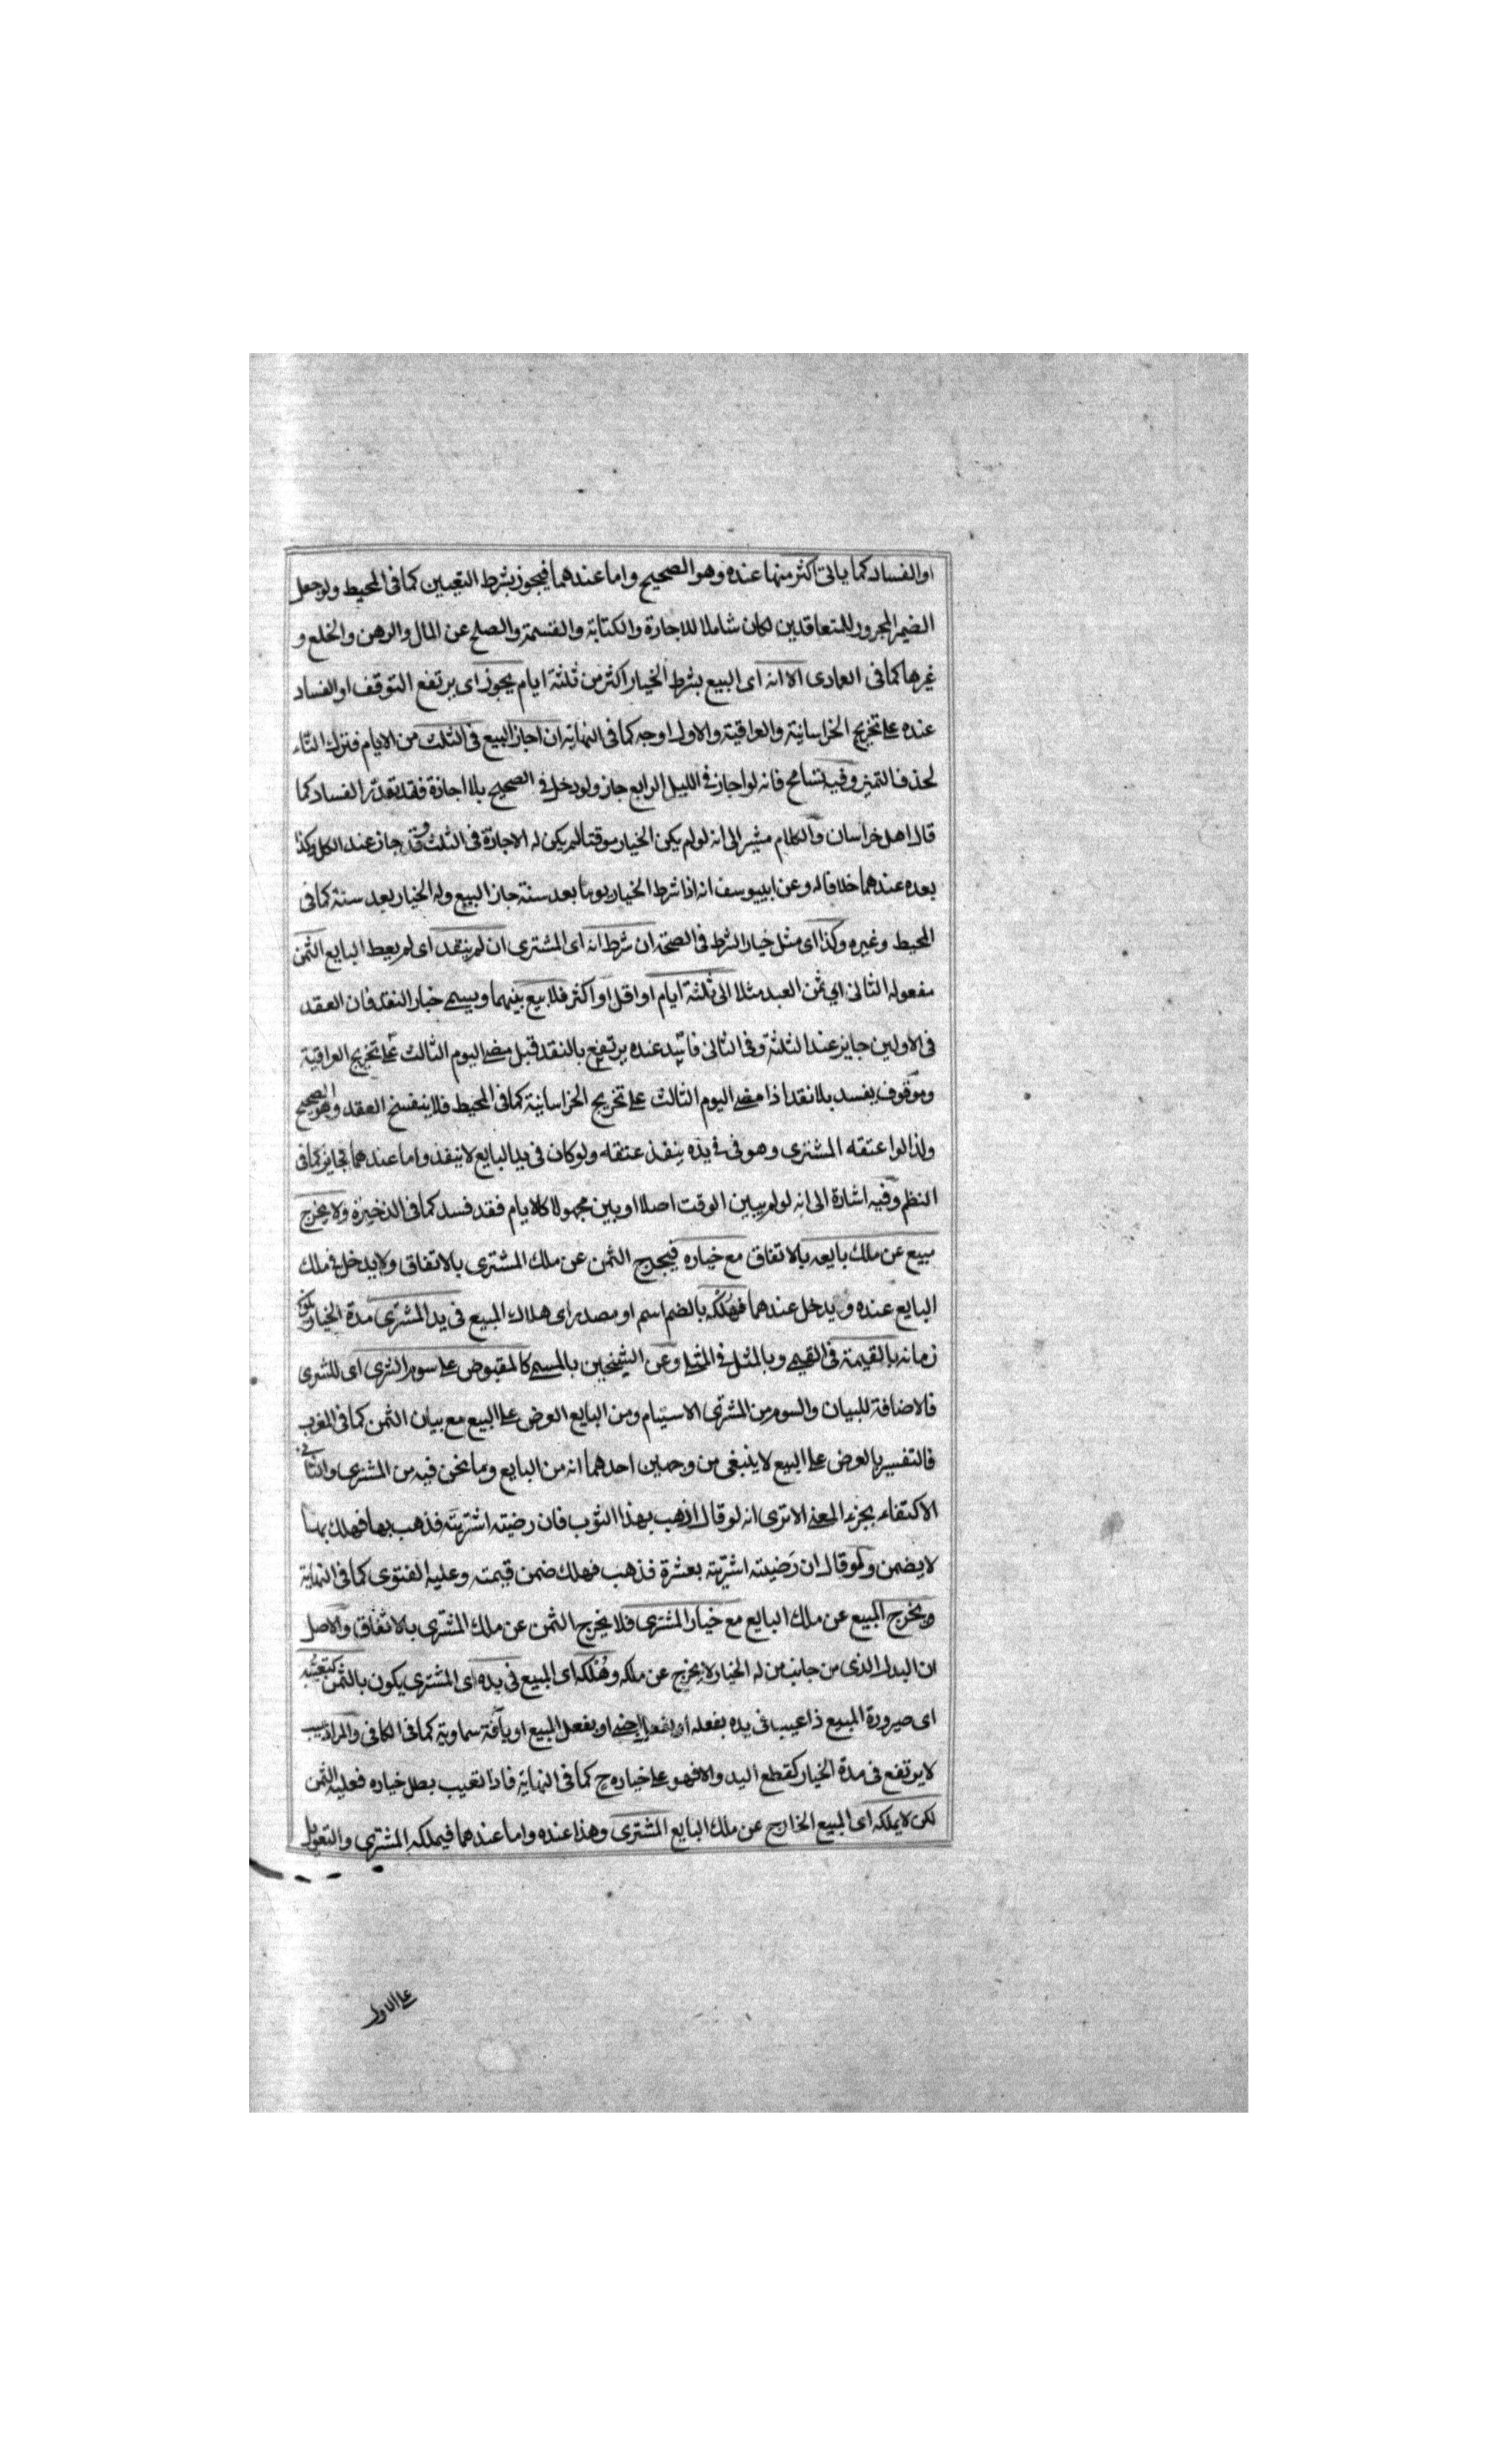 او الفساد كما ياتى اكثر منها عنده وهو الصحيح واما عندهما فيجوز بشرط التعيين كما فى المحيط ولو جعل
الضمير المجرور للمتعاقدين لكان شاملا للاجارة والكتابة والقسمة والصلح عن المال والرهن والخلع و
غيرها كما فى العمادى الا انه اى البيع بشرط الخيار اكثر من ثلثة ايام يجوز اى يرتفع التوقف او الفساد
عنده على تخريج الخراسانية والعراقية والاول اوجه كما فى النهاية ان اجاز البيع فى الثلث من الايام فترك التاء
لحذف التميز وفيه تسامح فانه لو اجاز فى الليل الرابع جاز ولو دخل فى الصحيح بلا اجازة فقد تقدر الفساد كما
قال اهل خراسان والكلام مشير الى انه لو لم يكن الخيار موقتا لم يكن له الاجازة فى الثلث وقد جاز عند الكل وكذا
بعده عندهما خلافا له وعن ابييوسف انه اذا شرط الخيار يوما بعد سنة جاز البيع وله الخيار بعد سنة كما فى
المحيط وغيره وكذا اى مثل خيار الشرط فى الصحة ان شرط انه اى المشترى ان لم ينقد اى لم يعط البايع الثمن
مفعوله الثانى اى ثمن العبد مثلا الى ثلثة ايام او اقل او اكثر فلا بيع بينهما ويسمى خيار النقد فان العقد
فى الاولين جايز عند الثلثة وفى الثانى فاسد عنده يرتفع بالنقد قبل مضى اليوم الثالث على تخريج العراقية
وموقوف يفسد بلا نقد اذا مضى اليوم الثالث على تخريج الخراسانية كما فى المحيط فلا ينفسخ العقد وهو الصحيح
ولذا لو اعتقه المشترى وهو فى فى يده ينفذ عتقه ولو كان فى يد البايع لا ينفذ واما عندهما فجايز كما فى
النظم وفيه اشارة الى انه لو لم يبين الوقت اصلا او بين مجهولا كالايام فقد فسد كما فى الذخيرة ولا يخرج
مبيع عن ملك بايعه بالاتفاق مع خياره فيخرج الثمن عن ملك المشترى بالاتفاق ولا يدخل فى ملك
البايع عنده ويدخل عندهما فهلكه بالضم اسم او مصدر اى هلاك المبيع فى يد المشترى مدة الخيار
زمانه بالقيمة فى القيمى وبالمثل فى المثلى وعن الشيخين بالمسمى كالمقبوض على سوم الشرى اى للشرى
فالاضافة للبيان والسوم من المشترى الاستيام ومن البايع العرض على البيع مع بيان الثمن كما فى المغرب
فالتفسير بالعرض على البيع لا ينبغى من وجهين احدهما انه من البايع وما نحن فيه من المشترى والثانى
الاكتفاء بجزء المعنى الا ترى انه لو قال اذهب بهذا الثوب فان رضيته اشتريته فذهب بها فهلك بها
لا يضمن ولو قال ان رضيته اشتريته بعشرة فذهب فهلك ضمن قيمته وعليه الفتوى كما فى النهاية
ويخرج المبيع عن ملك البايع مع خيار المشترى فلا يخرج الثمن عن ملك المشترى بالاتفاق والاصل
ان البدل الذى من جانب من له الخيار لا يخرج عن ملكه وهلكه اى المبيع فى يده اى المشترى يكون بالثمن كتعيبه
اى صيرورة المبيع ذا عيب فى يده بفعله او بفعل اجنبى او بفعل المبيع او بآفة سماوية كما فى الكافى والمراد عيب
لا يرتفع فى مدة الخيار كقطع اليد والا فهو على خياره ح كما فى النهاية فاذا تعيب بطل خياره فعليه الثمن
لكن لا يملكه اى المبيع الخارج عن ملك البايع المشترى وهذا عنده واما عندهما فيملكه المشترى والتعويل
على الاول